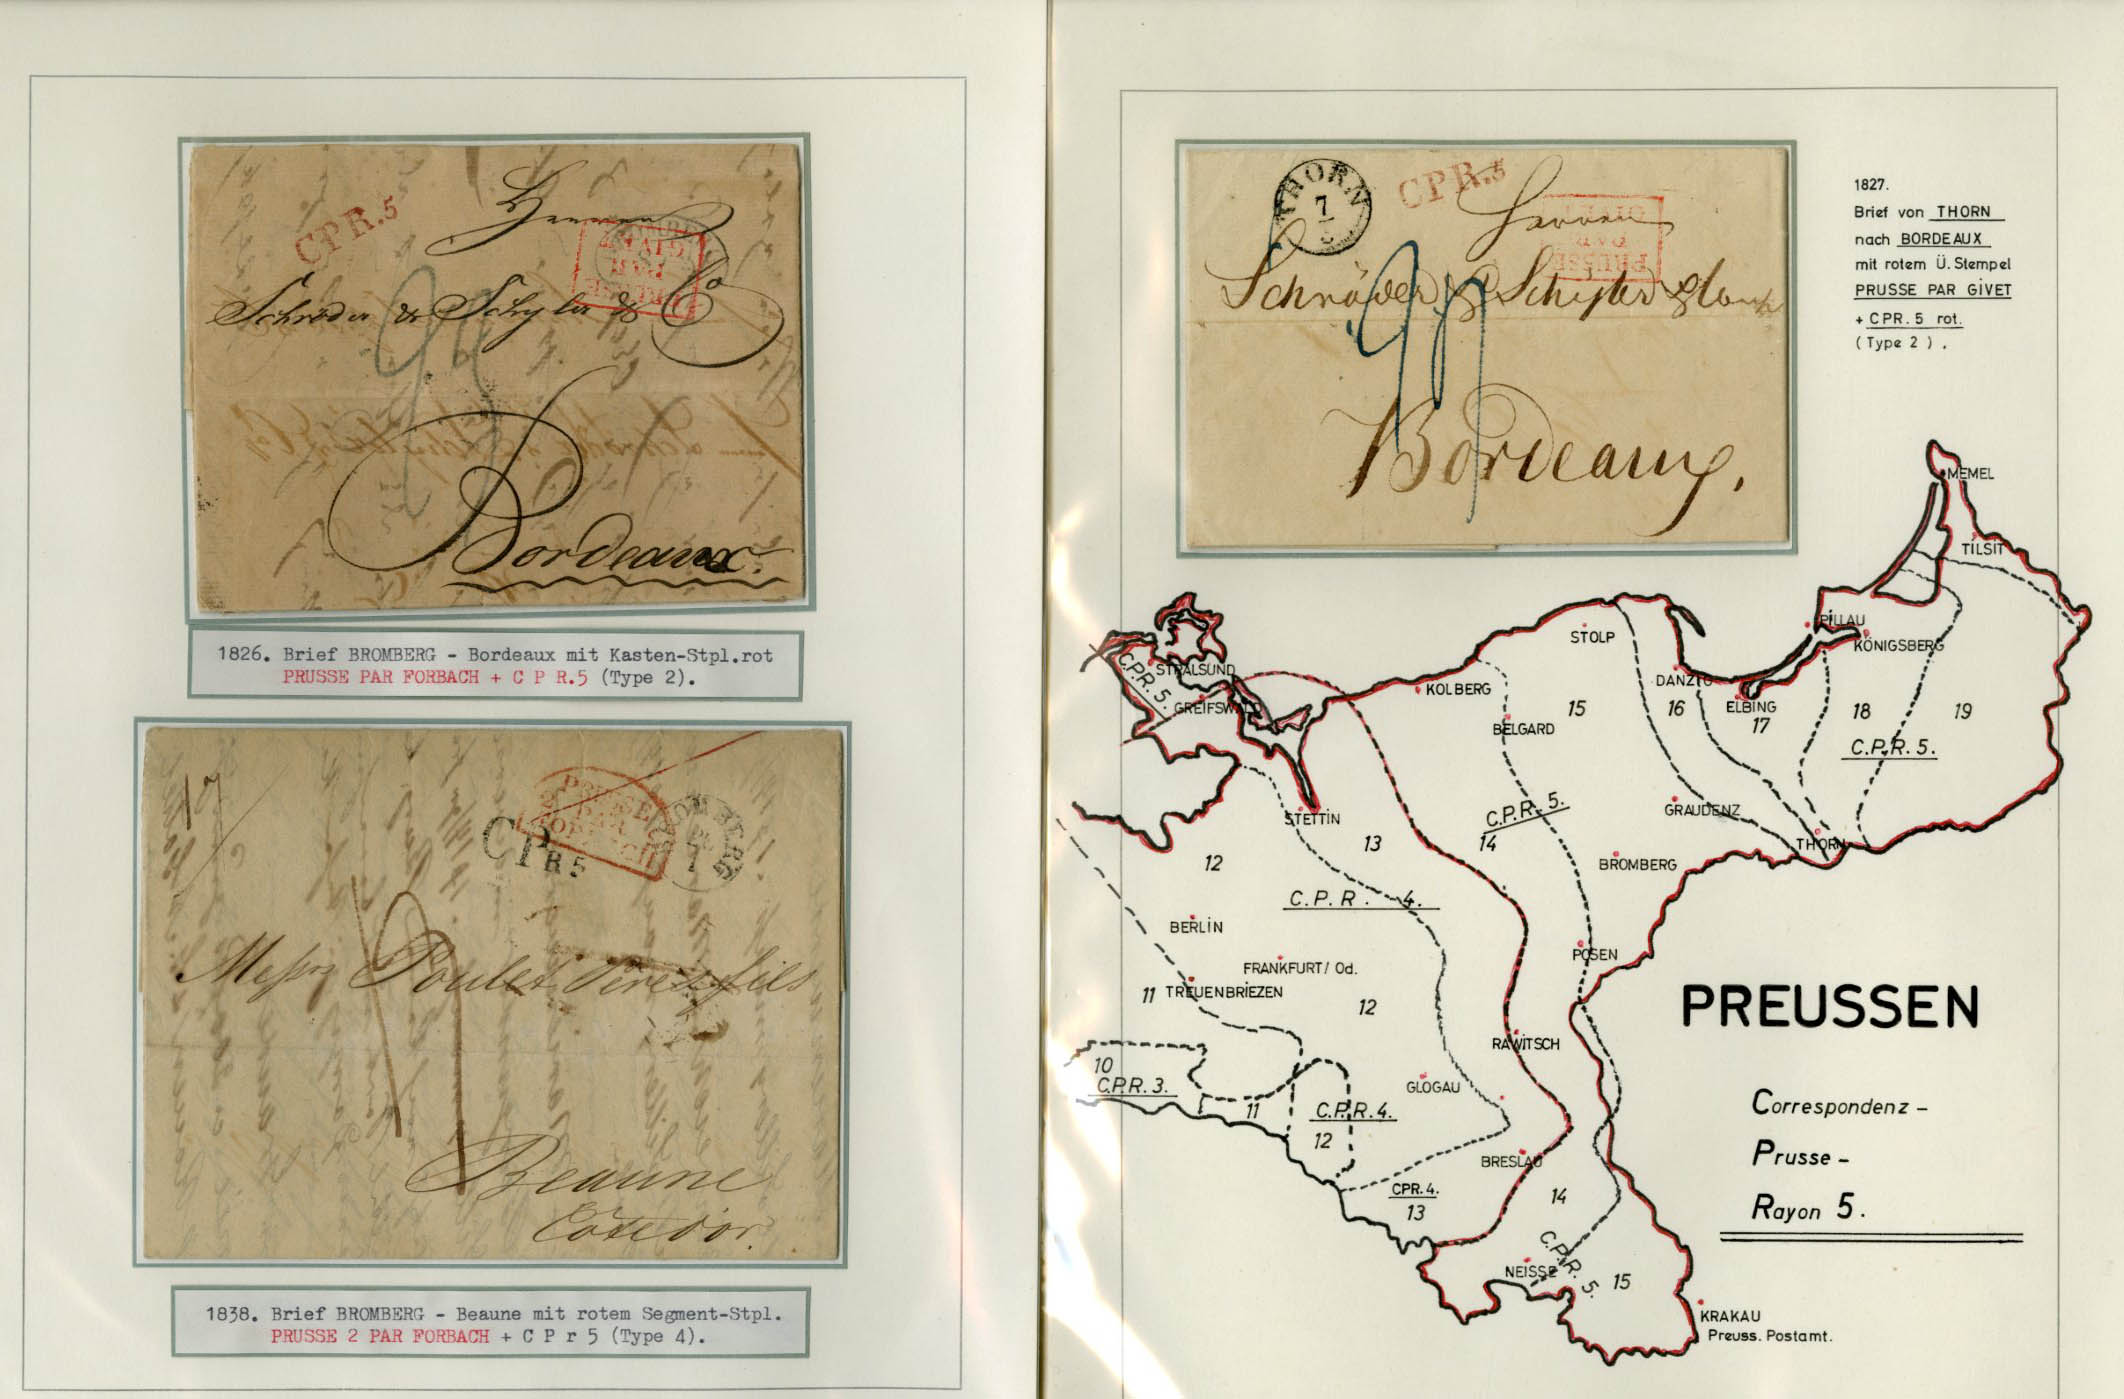 CPR.5
Herren
GIVET
PAR
PRUSSE
Schröder & Schyler & Co
Bordeaux.
1826. Brief BROMBERG - Bordeaux mit Kasten-Stpl.rot
PRUSSE PAR FORBACH + C P R.5 (Type 2).
17
PRUSSE
PAR
FORBACH
BROMBERG
7
1
CPR5
Messrs Poulet Pere & fils
Beaune
Cote d'or.
1838. Brief BROMBERG - Beaune mit rotem Segment-Stpl.
PRUSSE 2 PAR FORBACH + C P r 5 (Type 4).
THORN
7
CPR.5
Herren
GIVET
PAR
PRUSSE
Schröder & Schyler & Comp
Bordeaux.
1827.
Brief von THORN
nach BORDEAUX
mit rotem Ü. Stempel
PRUSSE PAR GIVET
+ CPR. 5 rot.
(Type 2).
MEMEL
TILSIT
PILLAU
KÖNIGSBERG
STOLP
C.P.R. 5.
STRALSUND
DANZIG
KOLBERG
GREIFSWALD
15
16
ELBING
17
18
19
BELGARD
C.P.R. 5.
STETTIN
C.P.R. 5.
GRAUDENZ
13
14
THORN
12
BROMBERG
C.P.R. 4.
BERLIN
POSEN
FRANKFURT/ Od.
11
TREUENBRIEZEN
12
PREUSSEN
RAWITSCH
10
C.P.R. 3.
GLOGAU
11
C.P.R. 4.
12
Correspondenz -
Prusse -
Rayon 5.
BRESLAU
CPR. 4.
13
14
C.P.R. 5.
NEISSE
15
KRAKAU
Preuss. Postamt.